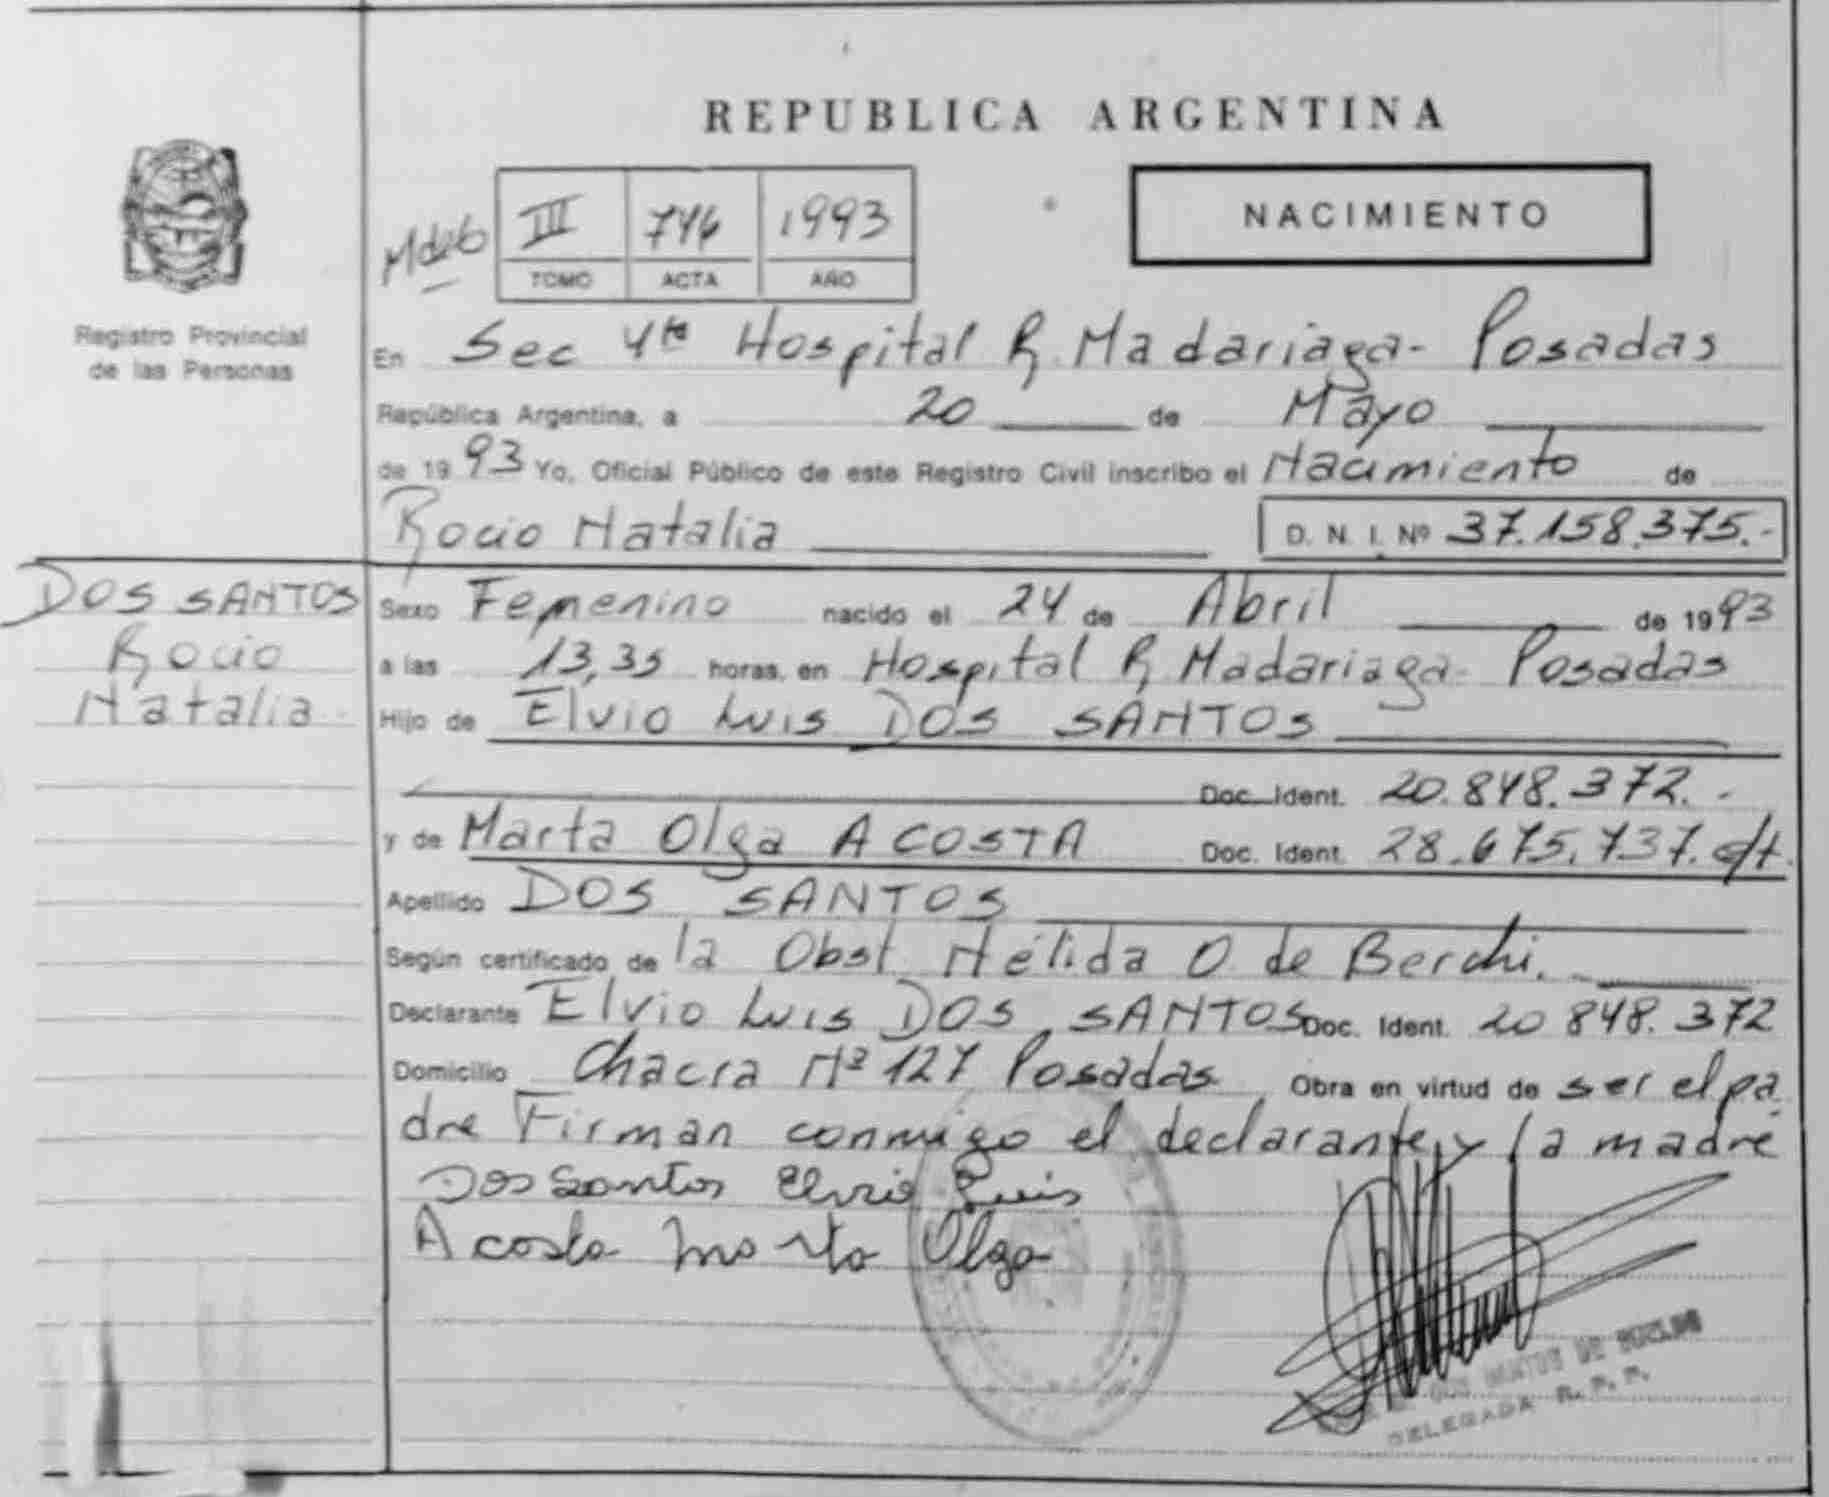 REPUBLICA ARGENTINA
NACIMIENTO
III 746 1993
TOMO ACTA AÑO
Registro Provincial
de las Personas
En Sec 4ta Hospital R. Madariaga - Posadas
República Argentina, a 20 de Mayo
de 1993 Yo, Oficial Público de este Registro Civil inscribo el Nacimiento de
Rocio Natalia D. N. I. Nº 37.158.375.-
DOS SANTOS
Rocio
Natalia
Sexo Femenino nacido el 24 de Abril de 1993
a las 13,35 horas, en Hospital R. Madariaga - Posadas
Hijo de Elvio Luis DOS SANTOS
Doc. Ident. 20.848.372.-
y de Marta Olga ACOSTA Doc. Ident. 28.675.737.
Apellido DOS SANTOS
Según certificado de la Obst. Nélida O. de Berchi.
Declarante Elvio Luis DOS SANTOS Doc. Ident. 20 848.372
Domicilio Chacra Nº 127 Posadas Obra en virtud de ser el pa
dre Firman conmigo el declarante y la madre
Dos Santos Elvio Luis
Acosta Marta Olga
DELEGADA R. P. P.